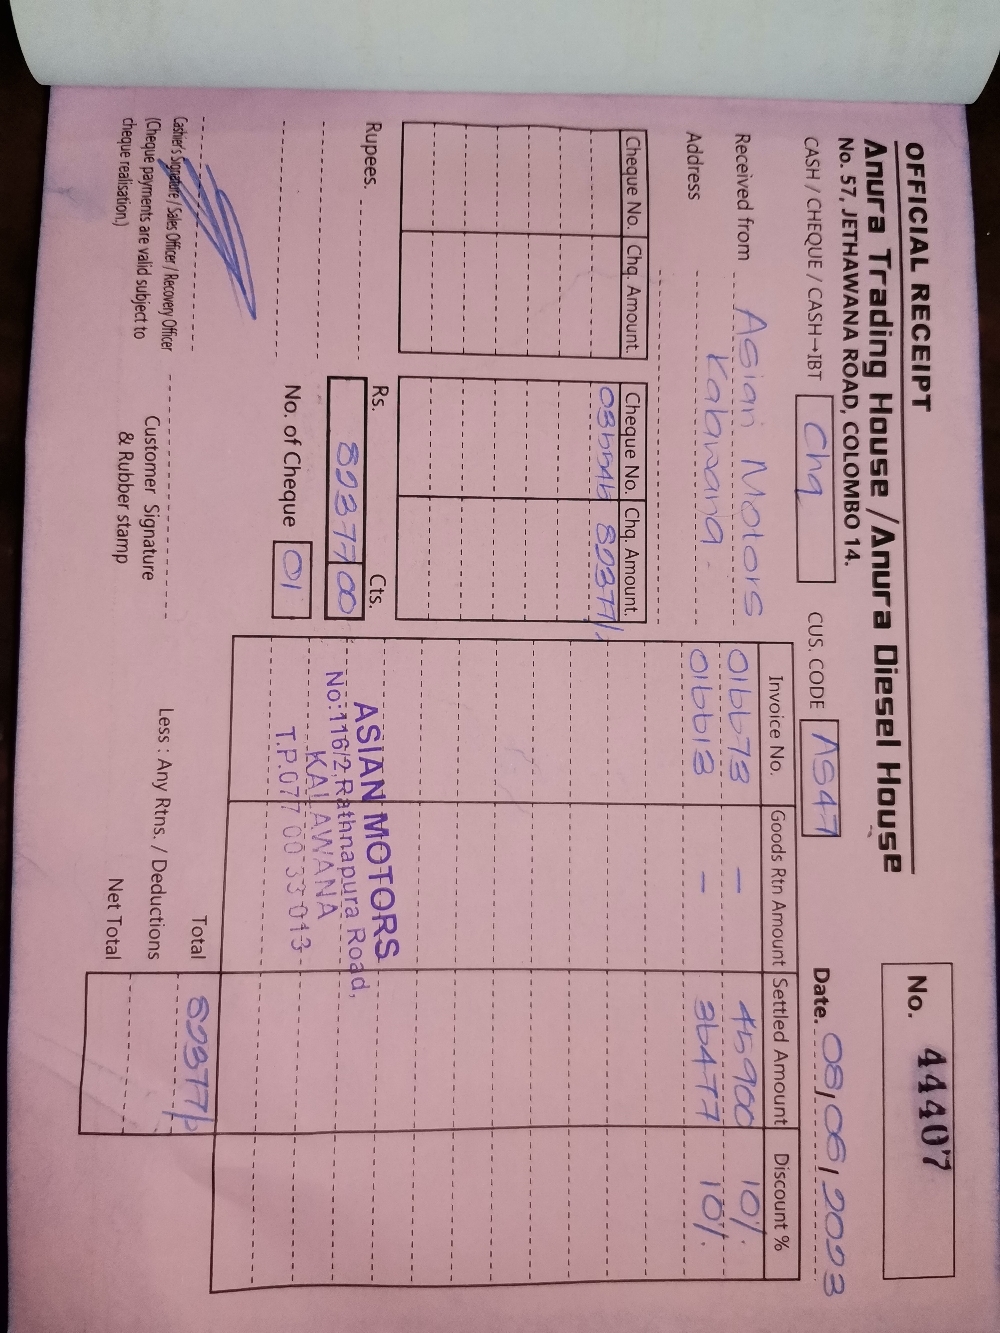 OFFICIAL RECEIPT
No. 44407
Anura Trading House / Anura Diesel House
No. 57, JETHAWANA ROAD, COLOMBO 14.
CASH / CHEQUE / CASH→IBT Chq CUS. CODE AS47 Date. 08/06/2023
Received from Asian Motors
Address Kalawana.
Cheque No. Chq. Amount. Cheque No. Chq. Amount.
82377/
Invoice No. Goods Rtn Amount Settled Amount Discount %
016673 – 45900 10%.
016613 – 36477 10%.
Rupees.
Rs. Cts.
82377 00
No. of Cheque 01
ASIAN MOTORS
No:116/2,Rathnapura Road,
KALAWANA
T.P.077 00 33 013
Total 82377/
Less : Any Rtns. / Deductions
Net Total
Cashier's Signature / Sales Officer / Recovery Officer
(Cheque payments are valid subject to
cheque realisation.)
Customer Signature
& Rubber stamp